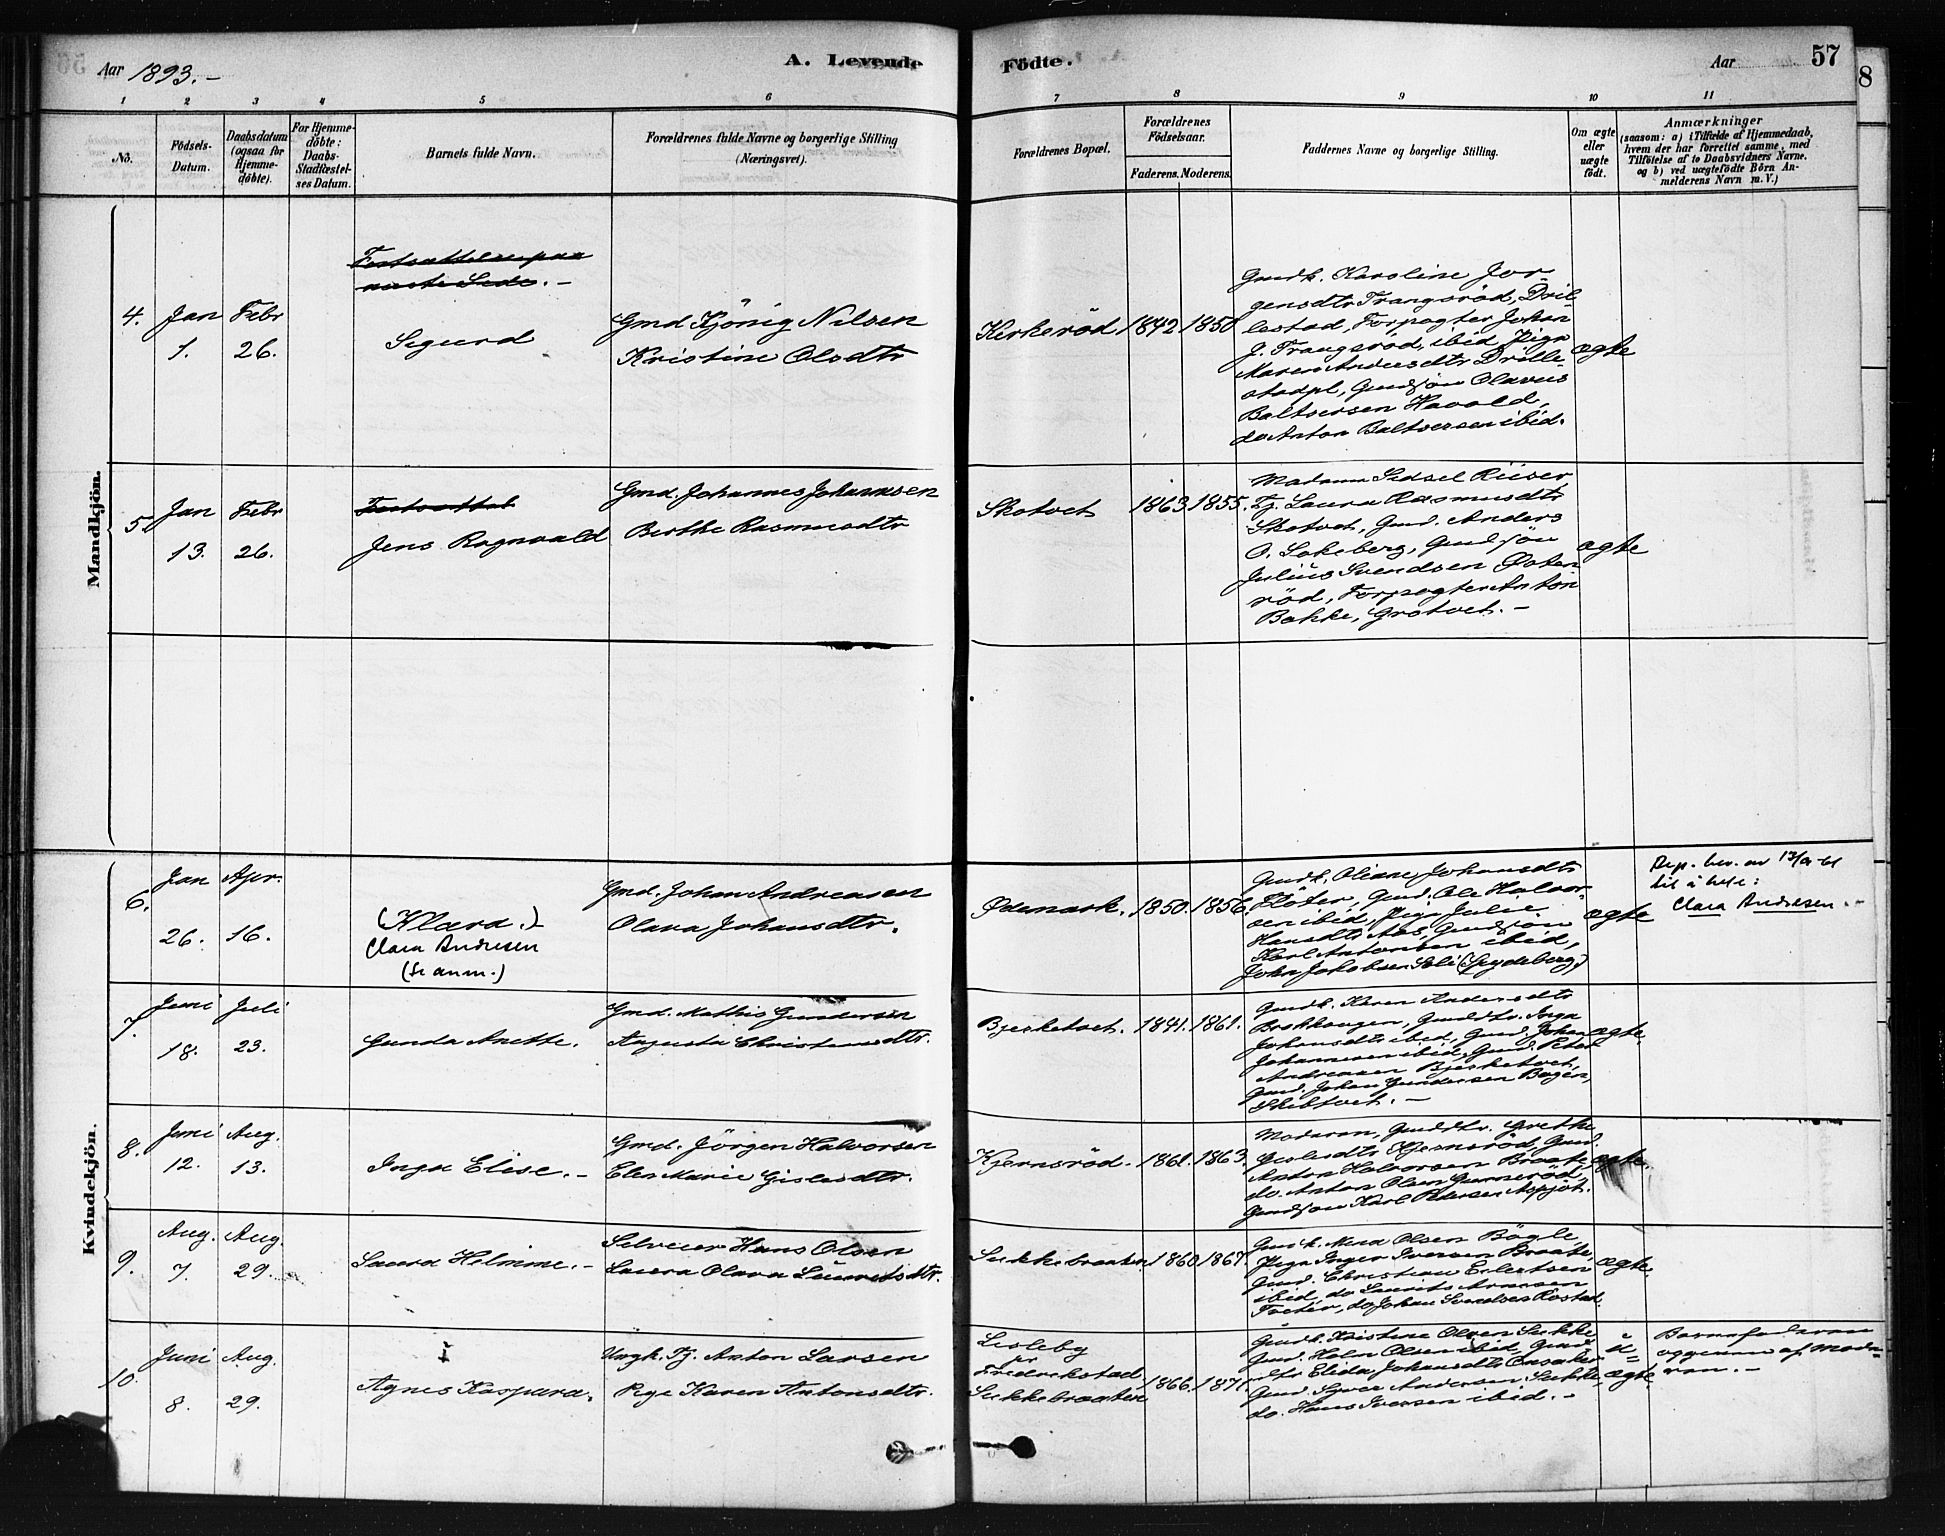 Aar 1893.-
A. Levende
Födte.
Aar
57
8
1 2 3 4 5 6 7 8 9 10 11
No.
Födsels-
Datum.
Daabsdatum
(ogsaa for
Hjemme-
döbte).
For Hjemme-
döbte:
Daabs-
Stadfæstel-
ses Datum.
Barnets fulde Navn.
Forældrenes fulde Navne og borgerlige Stilling
(Næringsvei).
Forældrenes Bopæl.
Forældrenes
Födselsaar.
Faderens. Moderens.
Faddernes Navne og borgerlige Stilling.
Om ægte
eller
uægte
födt.
Anmærkninger
(saasom: a) i Tilfælde af Hjemmedaab,
hvem der har forrettet samme, med
Tilföielse af to Daabsvidners Navne.
og b) ved uægtefödte Börn An-
melderens Navn m. V.)
Mandkjön.
4.
Jan
1.
Febr
26.
Fortsættelse fra
næste Side.-
Sigurd
Gmd Kjönig Nilsen
Kristine Olsdtr
Kirkeröd
1842
1850
Gmdk. Karoline Jor-
gensdtr Trangsröd, Dril-
lestad, Forpagter Johan
J. Trangsröd, ibid Pige
Maren Andersdtr Drille-
stadpl, Gmdsjön Olavus
Baltsersen Havold,
do Anton Baltsersen ibid.
ægte
5.
Jan
13.
Febr
26.
Fortsættel
Jens Ragnvald
Gmd. Johannes Johansen
Berthe Rasmusdtr
Skotvet
1863
1855.
Madame Sidsel Riiser
Tj. Laura Rasmusdtr
Skotvet, Gmd. Anders
O. Sokeberg, Gmdsjön
Julius Svendsen Østen-
röd, Forpagter Anton
Bakke, Grotvet.-
ægte
Kvindekjön.
6.
Jan
26.
Apr.
16.
(Klara.)
Clara Andresen
(Se anm.)
Gmd. Johan Andreasen
Olava Johansdtr.
Ødemark.
1850.
1856.
Gmdk. Oliane Johansdtr
Fløter, Gmd. Ole Halvor-
sen ibid, Pige Julie
Hansdtr Aas, Gmdsjön
Karl Antonsen ibid,
John Jakobsen Soli (Spydeberg)
ægte
Dep. bev. av 13/9-61
til å hete:
Clara Andresen.-
7.
Juni
18.
Juli
23.
Gunda Anette.
Gmd. Mathis Gundersen
Augusta Christensdtr.
Bjerketvet.
1841.
1861.
Gmdk. Karen Andersdtr
Brokhaugen, Gmddtr. Inga
Johansdtr ibid, Gmd. Johan
Johannesen ibid, Gmd. Peter
Andreasen Bjerketvet,
Gmd. Johan Gundersen Bøgen,
Skibtvet.-
ægte.
8.
Juni
12.
Aug.
13.
Inga Elise.-
Gmd. Jörgen Halvorsen
Elen Marie Gislesdtr.
Kjernsröd.
1861.
1863.
Moderen, Gmddtr. Grethe
Gislesdtr Kjernsröd, Gmd.
Anton Halvorsen Braate,
do. Anton Olsen Gunneröd,
Gmdsjön Karl Pedersen Aspjöt.
ægte.
9.
Aug.
7.
Aug.
29.
Laura Helmine.-
Selveier Hans Olsen
Laura Olava Lauritsdtr.
Sukkebraaten
1860
1867.
Gmdk. Mina Olsen Bögle,
Pige Inger Iversen Braate,
Gmd. Christian Eilertsen
ibid, do Laurits Arnesen
Toeter, do Johan Svendsen Rostad.
ægte.
10.
Juni
8.
Aug.
29.
Agnes Kaspara.
Ungk. Tj. Anton Larsen
Pige Karen Antonsdtr.
Lisleby
pr
Fredrikstad
Sukkebraaten
1866.
1871.
Gmdk. Kristine Olsen Sukke
Gmd. Halvor Olsen ibid, Gmd-
dtr Elida Johansdtr Onsaker
Gmd. Syver Andersen Sukke,
do. Hans Iversen ibid.-
u-
ægte.
Barnefaderen
opgiven af Mode-
ren.-